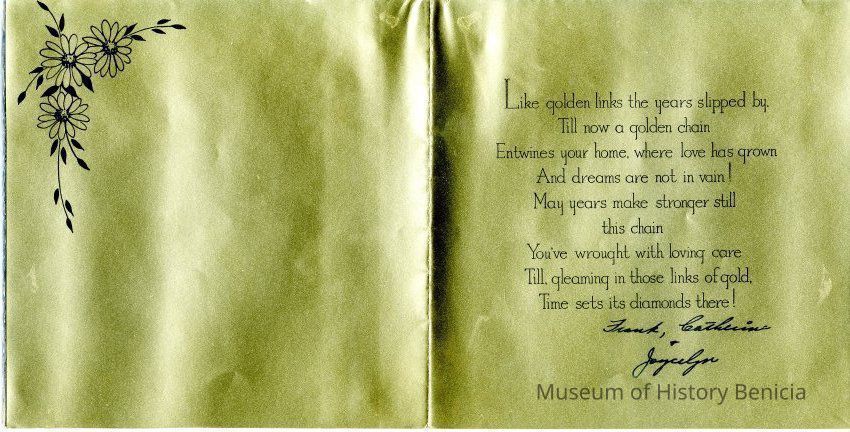 Like golden links the years slipped by,
Till now a golden chain
Entwines your home, where love has grown
And dreams are not in vain!
May years make stronger still
this chain
You've wrought with loving care
Till, gleaming in those links of gold,
Time sets its diamonds there!
Frank, Catherine
+
Joycelyn
Museum of History Benicia